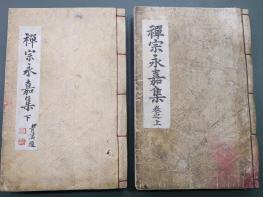 禪宗永嘉集
下
禪宗永嘉集
卷之上